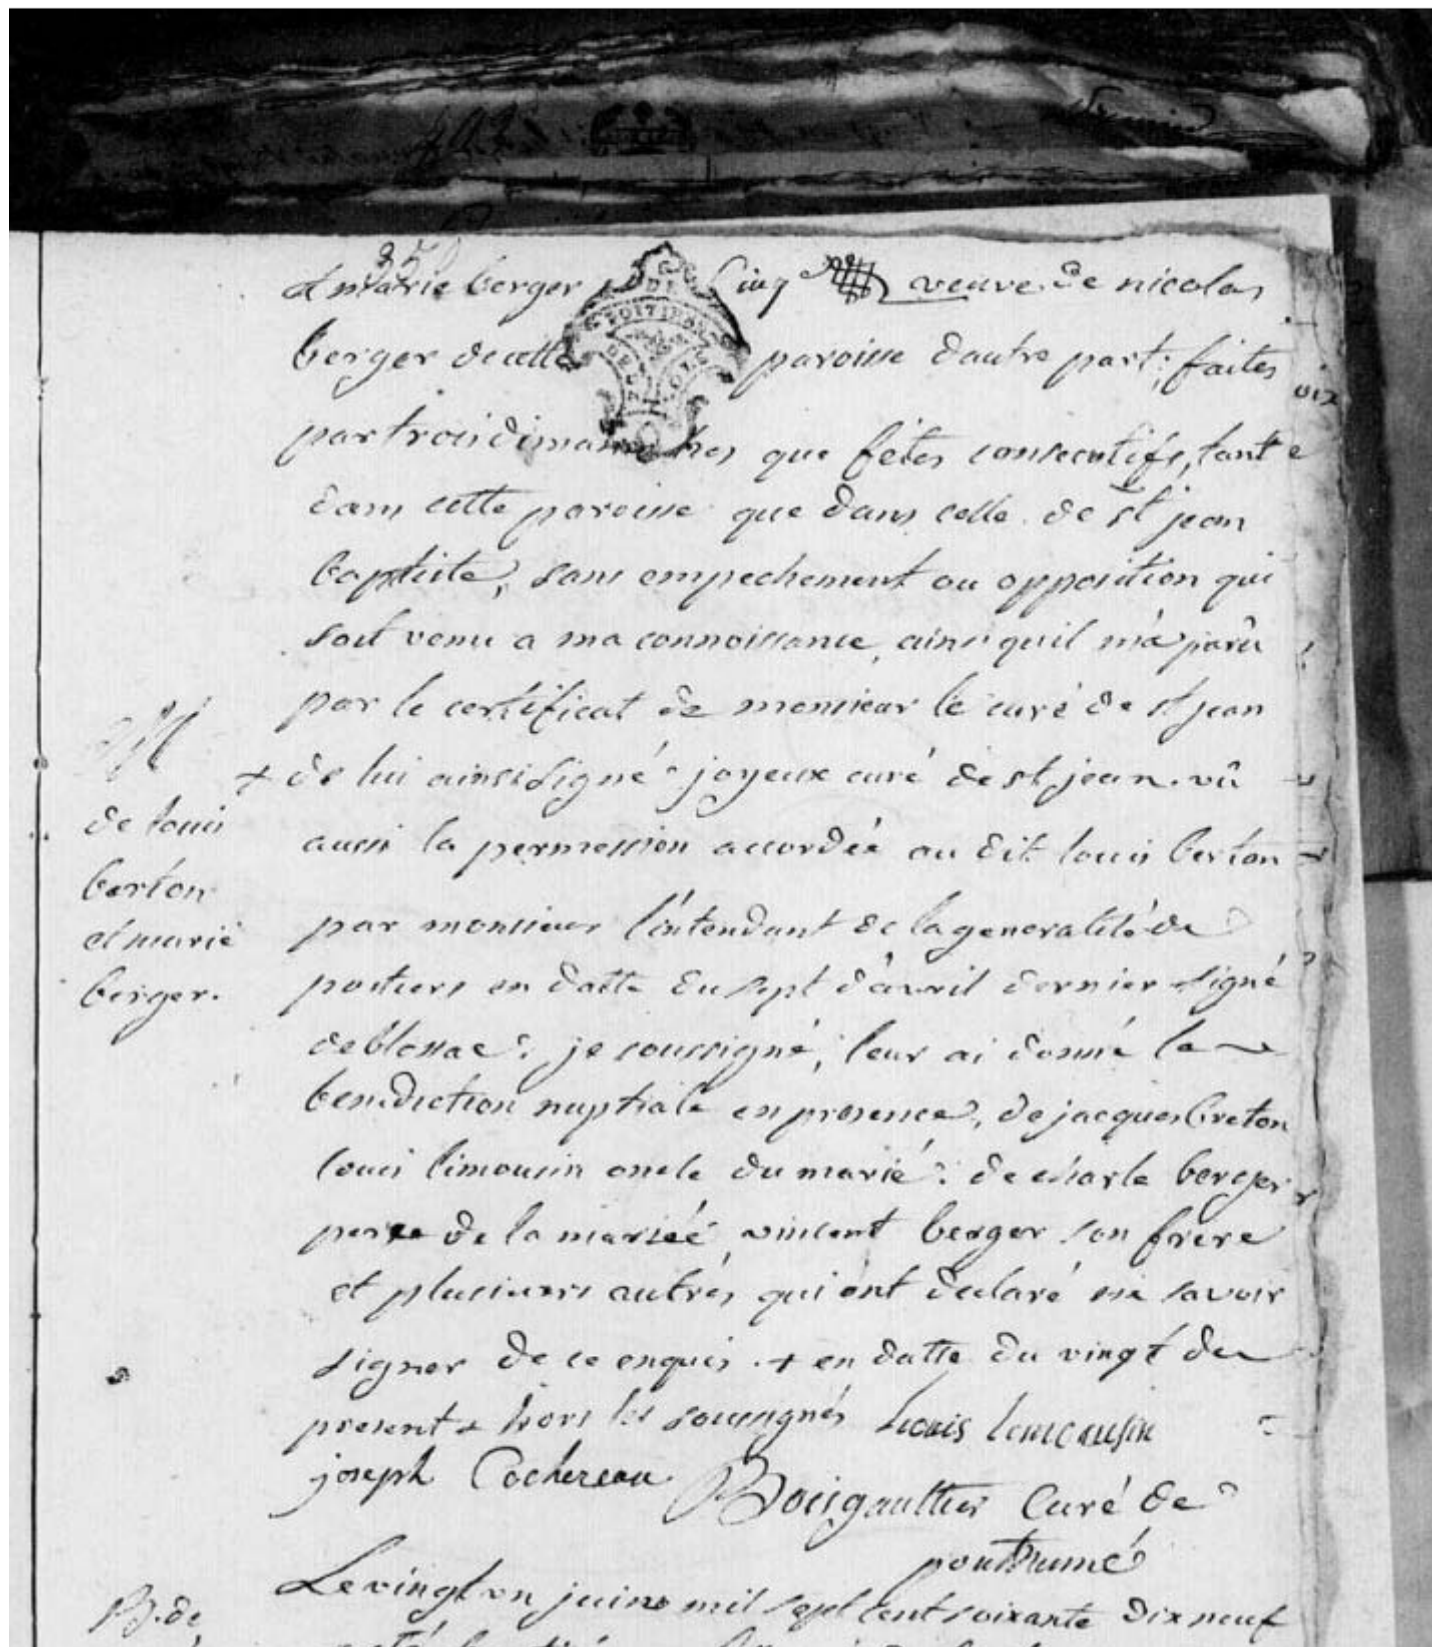 et marie berger Cinq veuve de nicolas
berger de cette paroisse dautre part; faites
par trois dimanches que fêtes consecutifs, tant
dans cette paroisse que dans celle de st jean
baptiste, sans empechement ou opposition qui
soit venu a ma connoissance, ainsi quil m'a parû
par le certificat de monsieur le curé de st jean
+ de lui ainsi signé joyeux curé de st jean. vû
aussi la permession accordée au dit louis berton
par monsieur l'intendant de la generalité de
poitiers en datte du sept d'avril dernier signé
deblossac. je soussigné, leur ai donné la
benediction nuptiale en presence, de jacques breton
louis limousin oncle du marié: de charle berger
pere de la mariéé, vincent berger son frere
et plusieurs autrés, qui ont declaré ne savoir
signer de ce enquis. + en datte du vingt du
present + hors les soussignés Louis lemousin
joseph Cochereau. Boisgaultier Curé de
pouthumé
M
de louis
berton
et marie
berger.
Le vingt un juin mil sept cent soixante dix neuf
B. de